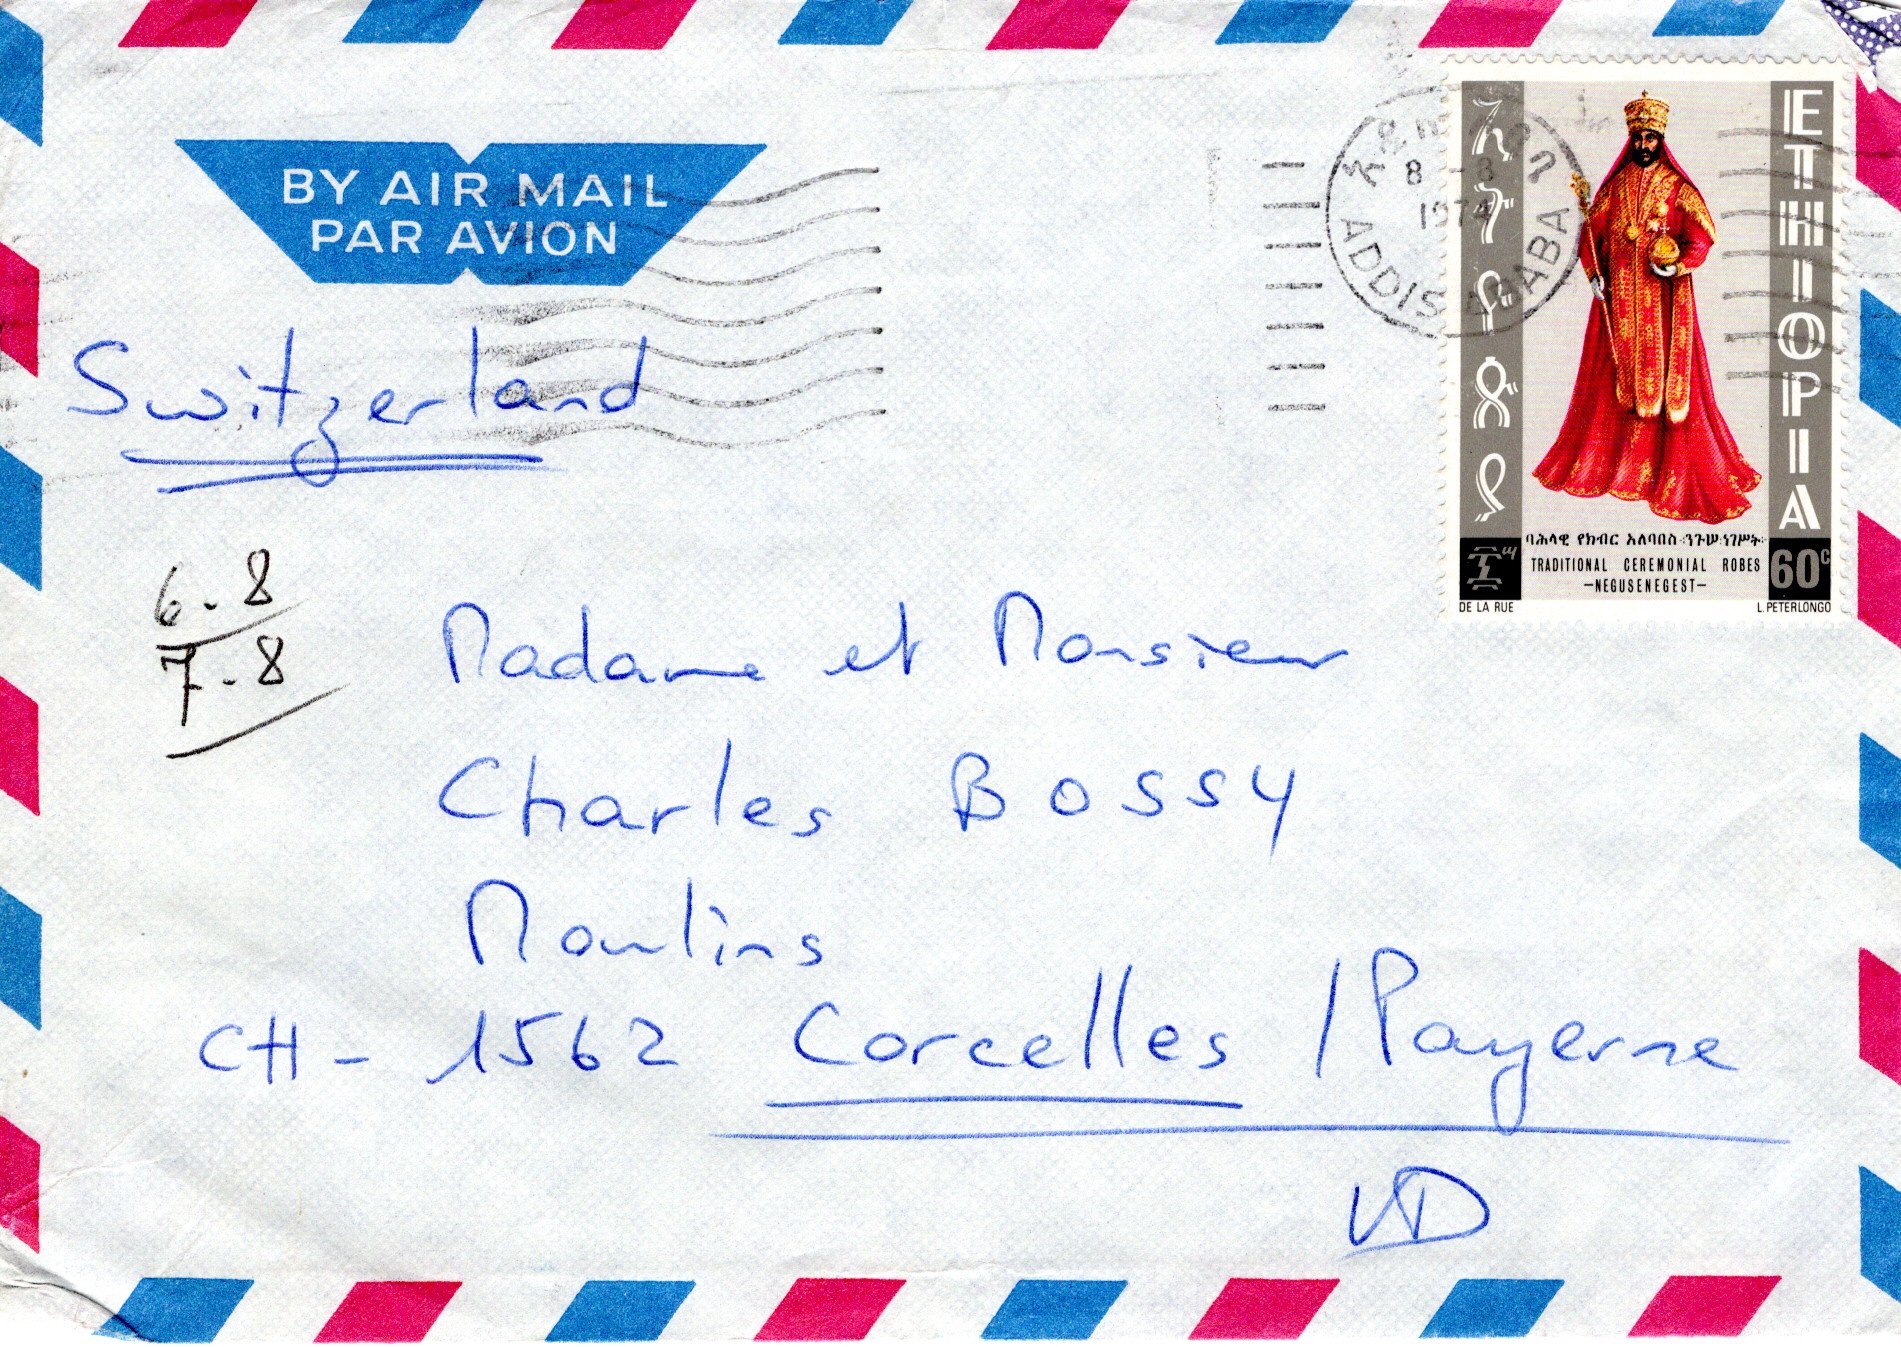 BY AIR MAIL
PAR AVION
አዲስ አበባ
8 - 8
1974
ADDIS ABABA
ኢትዮጵያ
ETHIOPIA
ባሕላዊ የክብር አለባበስ ንጉሠ ነገሥት
፷ ሣ
TRADITIONAL CEREMONIAL ROBES
—NEGUSENEGEST—
60c
DE LA RUE
L. PETERLONGO
Switzerland
6. 8
7. 8
Madame et Monsieur
Charles BOSSY
Moulins
CH - 1562 Corcelles / Payerne
VD